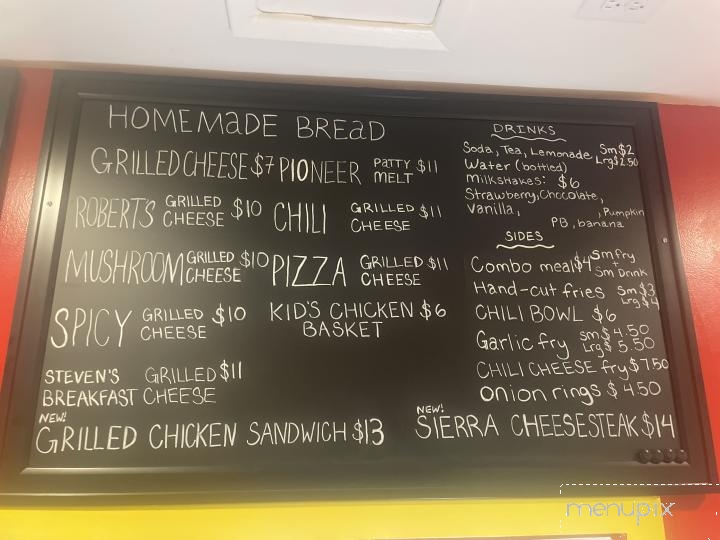 HOMEMADE BREAD
GRILLED CHEESE $7
PIONEER PATTY MELT $11
ROBERTS GRILLED CHEESE $10
CHILI GRILLED CHEESE $11
MUSHROOM GRILLED CHEESE $10
PIZZA GRILLED CHEESE $11
SPICY GRILLED CHEESE $10
KID'S CHICKEN BASKET $6
STEVEN'S BREAKFAST GRILLED CHEESE $11
NEW!
GRILLED CHICKEN SANDWICH $13
DRINKS
Soda, Tea, Lemonade Sm $2
Lrg $2.50
Water (bottled)
Milkshakes: $6
Strawberry, Chocolate,
Vanilla, , Pumpkin
PB, banana
SIDES
Combo meal $4 Sm fry
Sm Drink
Hand-cut fries Sm $3
Lrg $4
CHILI BOWL $6
Garlic fry Sm $4.50
Lrg $5.50
CHILI CHEESE fry $7.50
Onion rings $4.50
NEW!
SIERRA CHEESESTEAK $14
menupix